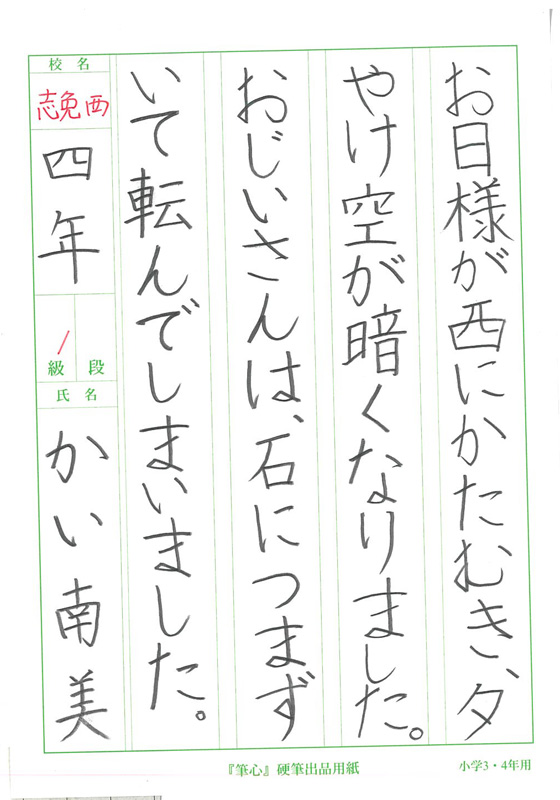 お日様が西にかたむき、夕
やけ空が暗くなりました。
おじいさんは、石につまず
いて転んでしまいました。
校名
志免西
四年
級 段
1
氏名
かい南美
『筆心』硬筆出品用紙
小学3・4年用